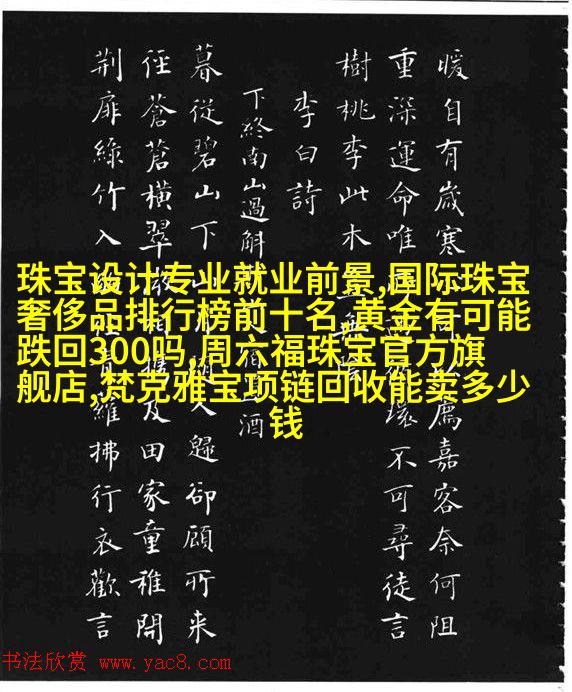 珠宝设计专业就业前景,国际珠宝
奢侈品排行榜前十名,黄金有可能
跌回300吗,周六福珠宝官方旗
舰店,梵克雅宝项链回收能卖多少
钱
暖自有歲寒薦嘉客奈何阻
重深運命唯環不可尋徒言
樹桃李此木豈無陰
李白詩
下終南山過斛酒
暮從碧山下山月隨人歸卻顧所來
徑蒼蒼橫翠相攜及田家童稚開
荊扉綠竹入青蘿拂行衣歡言
书法欣赏 www.yac8.com